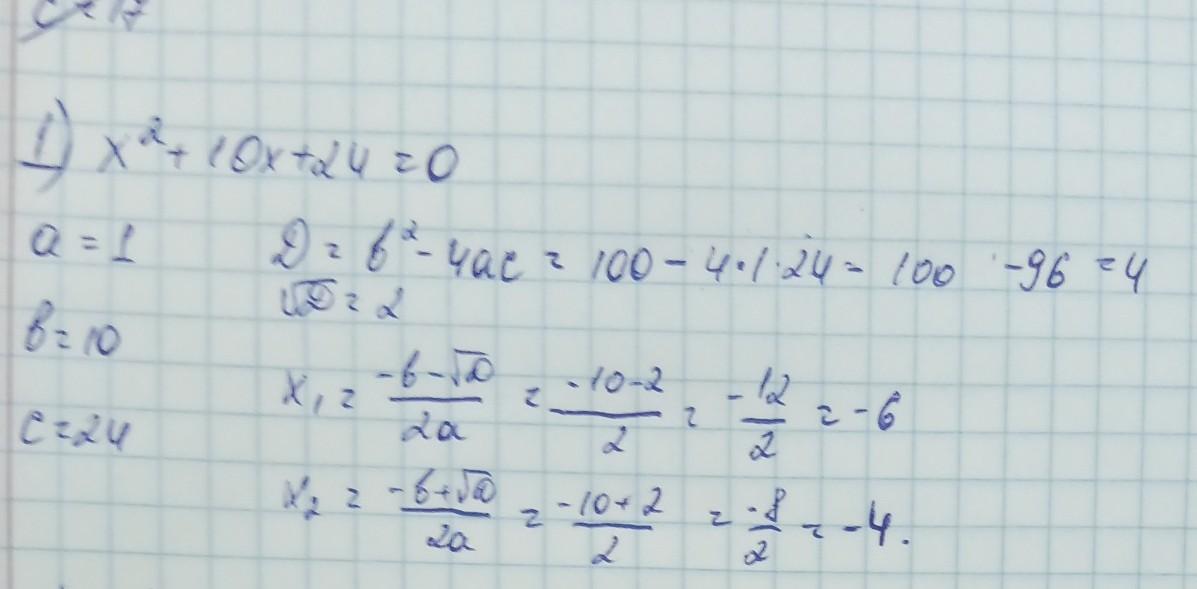 1) x² + 10x + 24 = 0
a = 1
D = b² - 4ac = 100 - 4·1·24 = 100 - 96 = 4
√D = 2
b = 10
x₁ = (-b-√D)/(2a) = (-10-2)/2 = -12/2 = -6
c = 24
x₂ = (-b+√D)/(2a) = (-10+2)/2 = -8/2 = -4.